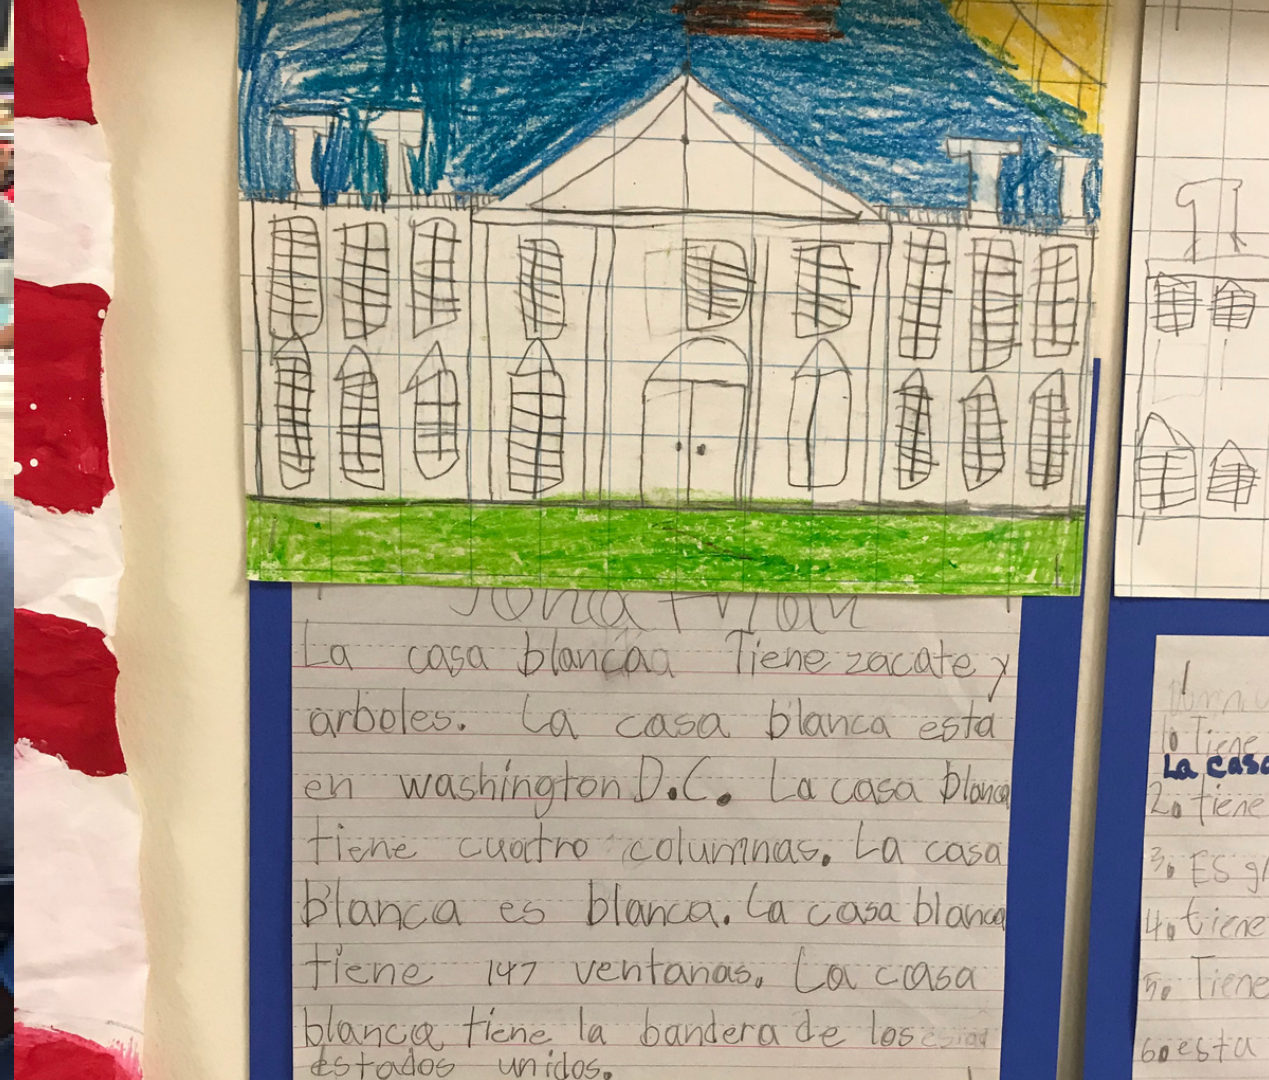 La casa blanca Tiene zacate y
arboles. La casa blanca esta
en washington D.C. La casa blanca
tiene cuatro columnas. La casa
Blanca es blanca. La casa blanca
tiene 147 ventanas. La casa
blanca tiene la bandera de los
estados unidos.
1. Tiene
La casa
2. tiene
3. Es
4. tiene
5. Tiene
6. esta